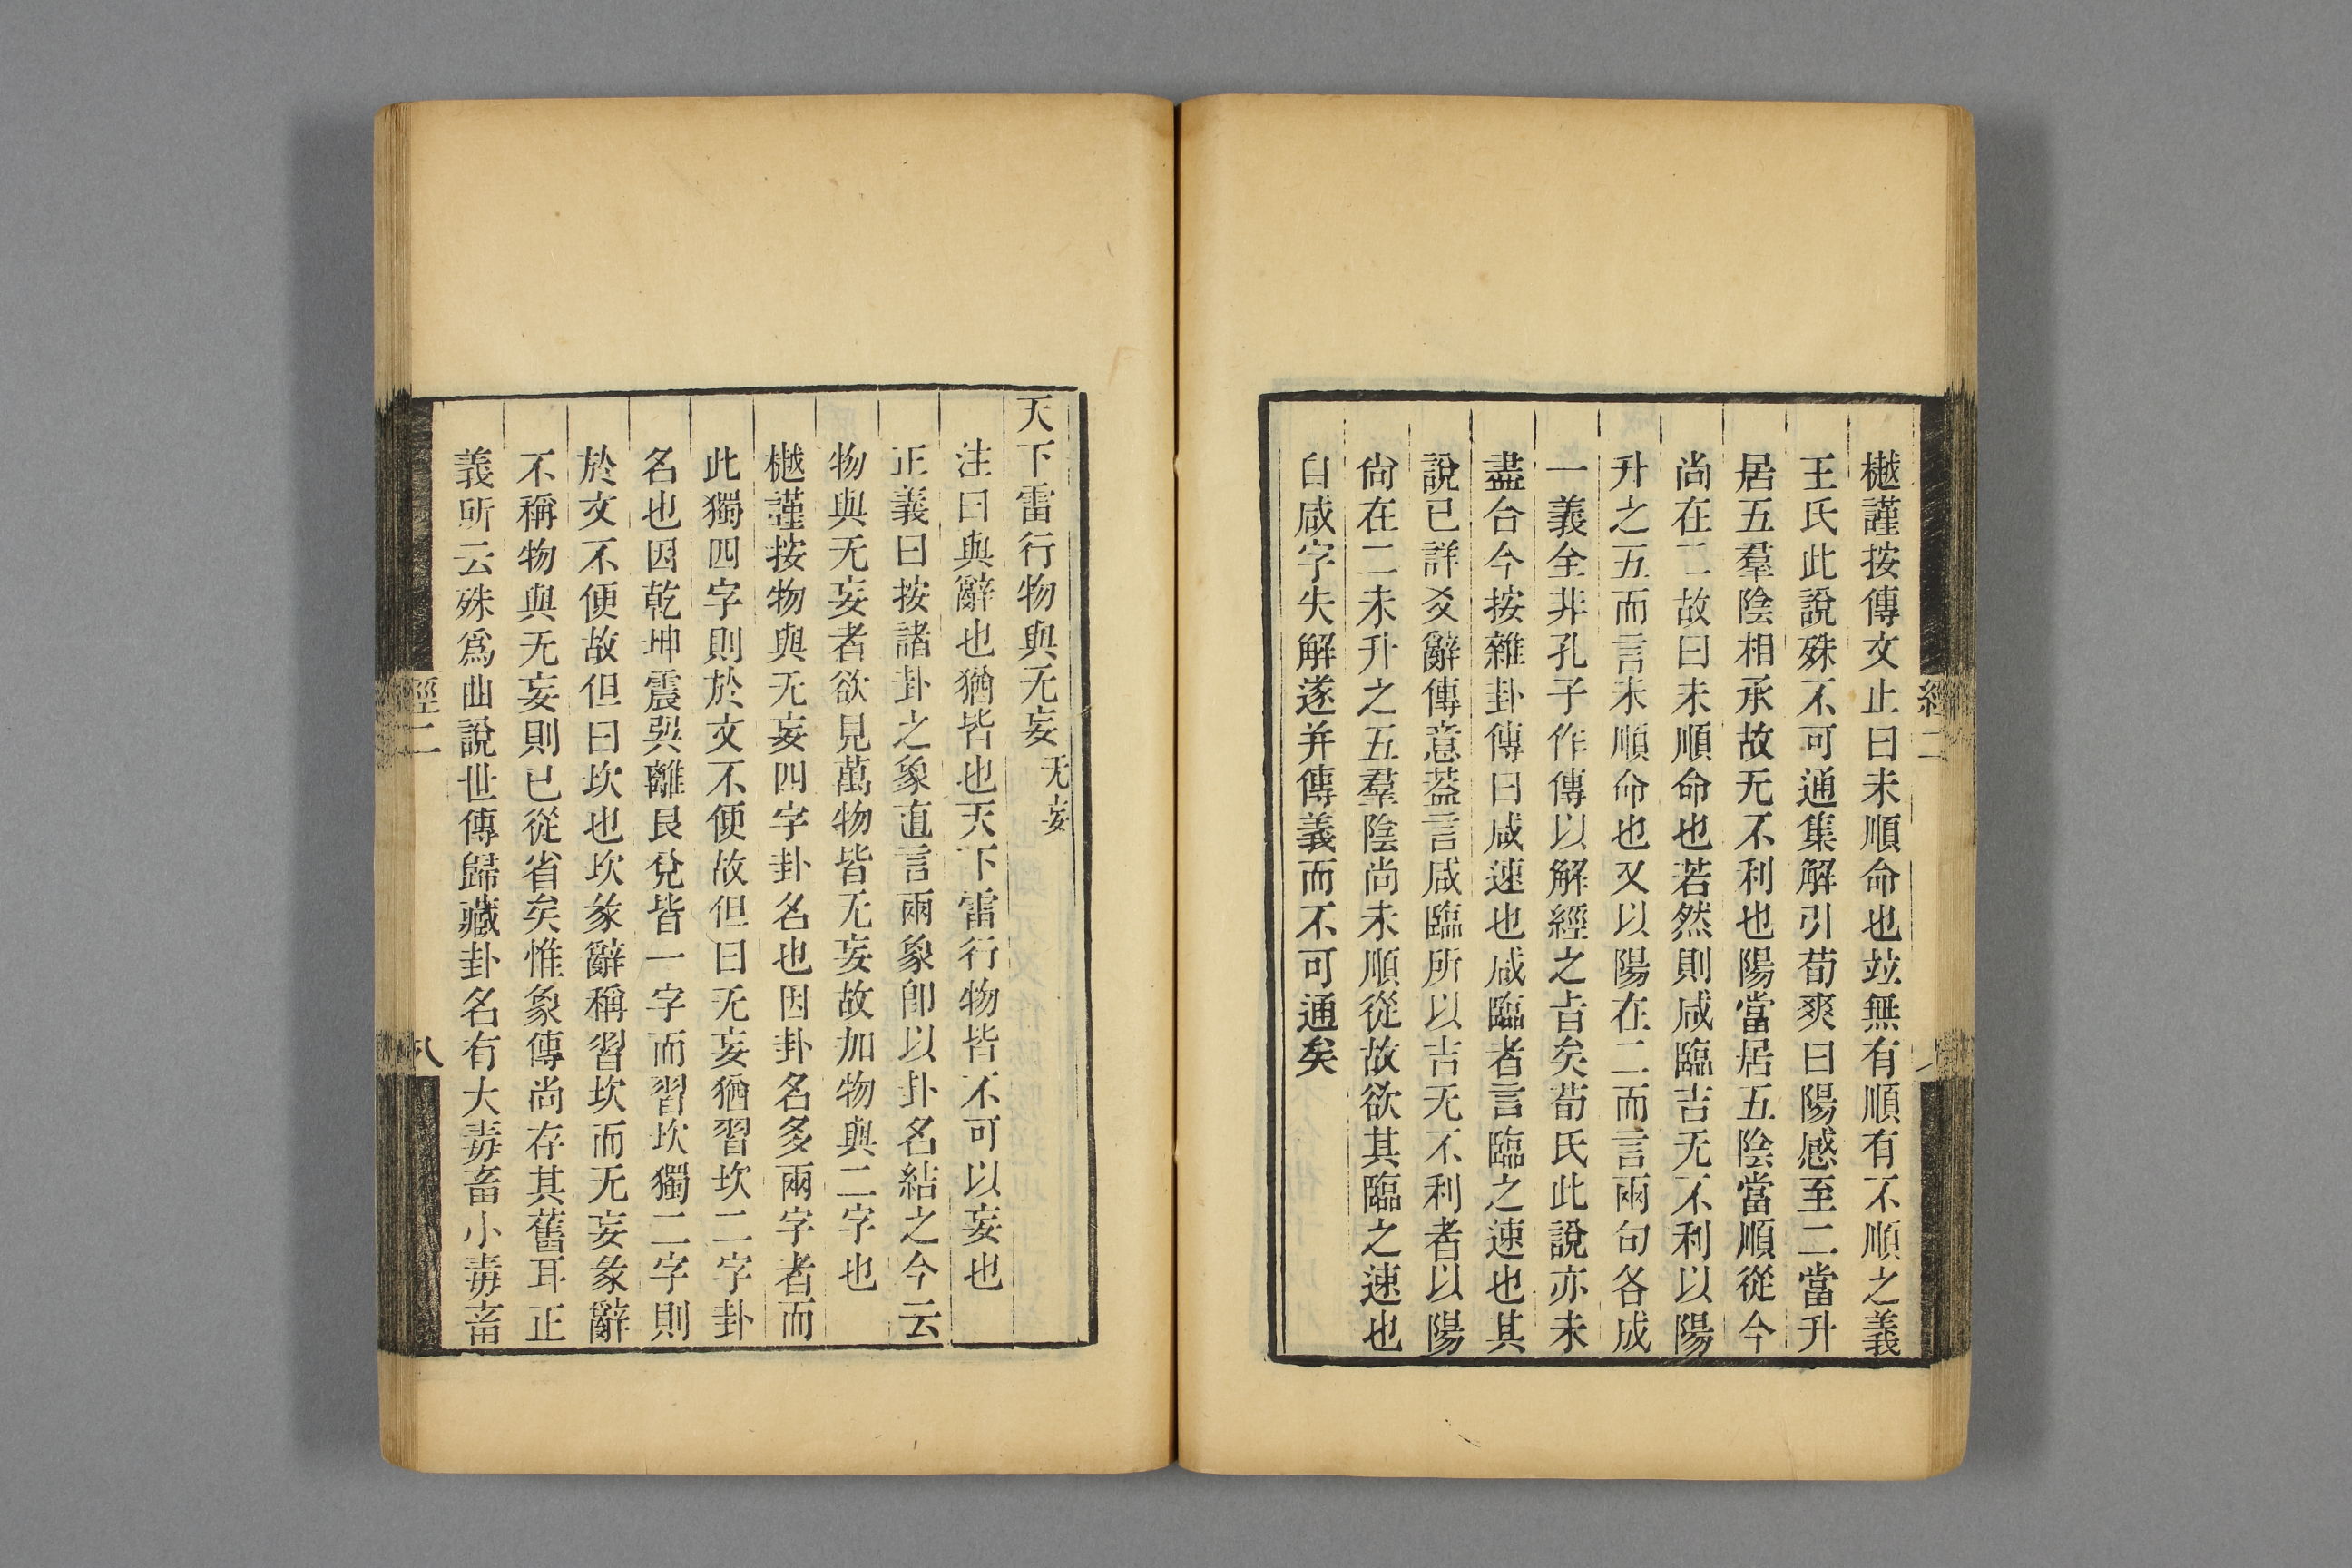 樾謹按傳文止曰未順命也竝無有順有不順之義
王氏此說殊不可通集解引荀爽曰陽感至二當升
居五羣陰相承故无不利也陽當居五陰當順從今
尚在二故曰未順命也若然則咸臨吉无不利以陽
升之五而言未順命也又以陽在二而言兩句各成
一義全非孔子作傳以解經之旨矣荀氏此說亦未
盡合今按雜卦傳曰咸速也咸臨者言臨之速也其
說已詳爻辭傳意葢言咸臨所以吉无不利者以陽
尙在二未升之五羣陰尚未順從故欲其臨之速也
自咸字失解遂并傳義而不可通矣
經二
天下雷行物與无妄 无妄
注曰與辭也猶皆也天下雷行物皆不可以妄也
正義曰按諸卦之象直言兩象卽以卦名結之今云
物與无妄者欲見萬物皆无妄故加物與二字也
樾謹按物與无妄四字卦名也因卦名多兩字者而
此獨四字則於文不便故但曰无妄猶習坎二字卦
名也因乾坤震巽離艮兌皆一字而習坎獨二字則
於文不便故但曰坎也坎彖辭稱習坎而无妄彖辭
不稱物與无妄則已從省矣惟象傳尚存其舊耳正
義所云殊爲曲說世傳歸藏卦名有大毒畜小毒畜
經二
八